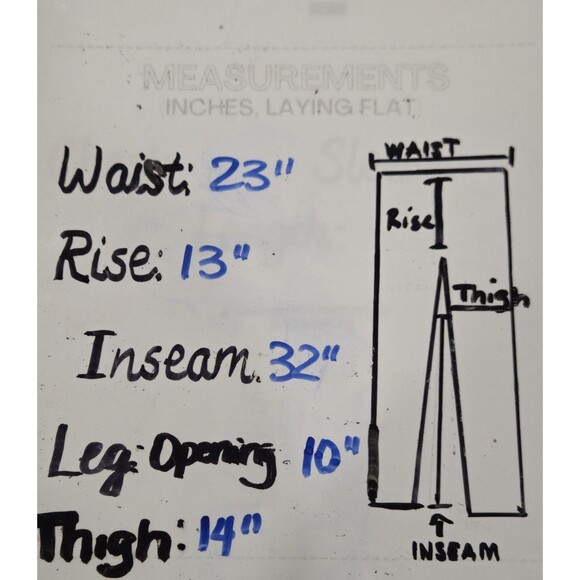 MEASUREMENTS
(INCHES, LAYING FLAT)
Waist: 23"
Rise: 13"
Inseam. 32"
Leg: Opening 10"
Thigh: 14"
WAIST
Rise
Thigh
INSEAM